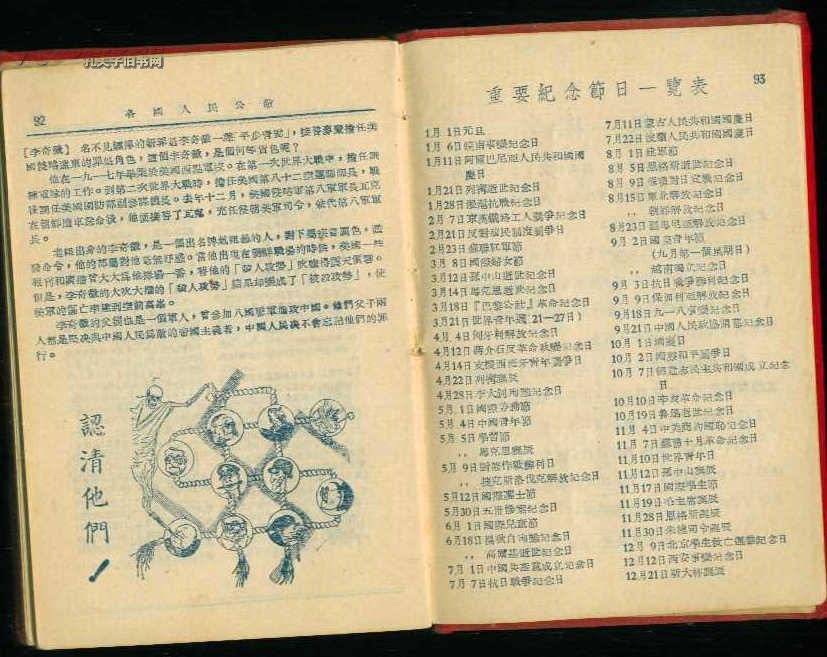 孔夫子旧书网
92
各國人民公敵
[李奇微] 名不見經傳的新罪犯李奇微一聲「平步青雲」,接替麥魔擔任美
國侵略遠東的罪犯角色,這個李奇微,是個何等貨色呢?
他在一九一七年畢業於美國西點軍校。在第一次世界大戰中,擔任訓
練軍隊的工作。到第二次世界大戰時,擔任美國第八十二空運師師長,戰
後調任美國國防部副參謀長。去年十二月,美國侵略軍第八軍軍長瓦克
在朝鮮撞車斃命後,他便接替了瓦魔,充任侵朝美軍司令,兼代第八軍軍
長。
老粗出身的李奇微,是一個出名脾氣粗暴的人,對下屬
發命令,他的部屬對他毫無好感。當他出現在朝鮮戰場的時候,美國一些
報刊和廣播曾大大爲他捧場一番,替他的「殺人攻勢」吹噓得震天價響。
但是,李奇微的大吹大擂的「殺人攻勢」結果却變成了「被殺攻勢」,使
美軍的傷亡率達到空前高峯。
李奇微的父親也是一個軍人,曾參加八國聯軍進攻中國。他們父子兩
人都是堅决與中國人民爲敵的帝國主義者,中國人民决不會忘記他們的罪
行。
認清他們!
重要紀念節日一覽表
93
1月 1日元旦
1月 6日皖南事變紀念日
1月11日阿爾巴尼亞人民共和國國
慶日
1月21日列寧逝世紀念日
1月28日淞滬抗戰紀念日
2月 7日京漢鐵路工人鬭爭紀念日
2月21日反對殖民制度鬭爭日
2月23日蘇聯紅軍節
3月 8日國際婦女節
3月12日孫中山逝世紀念日
3月14日馬克思逝世紀念日
3月18日『巴黎公社』革命紀念日
3月21日世界青年週(21—27日)
4月 4日匈牙利解放紀念日
4月12日蔣介石反革命政變紀念日
4月14日支援西班牙青年鬭爭日
4月22日列寧誕辰
4月28日李大釗殉難紀念日
5月 1日國際勞動節
5月 4日中國青年節
5月 5日學習節
〃 馬克思誕辰
5月 9日對德作戰勝利日
〃 捷克斯洛伐克解放紀念日
5月12日國際護士節
5月30日五卅慘案紀念日
6月 1日國際兒童節
6月18日瞿秋白殉難紀念日
〃 高爾基逝世紀念日
7月 1日中國共產黨成立紀念日
7月 7日抗日戰爭紀念日
7月11日蒙古人民共和國國慶日
7月22日波蘭人民共和國國慶日
8月 1日建軍節
8月 5日恩格斯逝世紀念日
8月 9日蘇聯對日宣戰紀念日
8月15日東北解放紀念日
〃 朝鮮解放紀念日
8月23日羅馬尼亞解放紀念日
9月 2日國際青年節
(九月第一個星期日)
〃 越南獨立紀念日
9月 3日抗日戰爭勝利紀念日
9月 9日保加利亞解放紀念日
9月18日九一八事變紀念日
9月21日中國人民政協開幕紀念日
10月 1日國慶日
10月 2日國際和平鬭爭日
10月 7日德意志民主共和國成立紀念
日
10月10日辛亥革命紀念日
10月19日魯迅逝世紀念日
11月 4日中美商約國恥紀念日
11月 7日蘇聯十月革命紀念日
11月10日世界青年日
11月12日孫中山誕辰
11月17日國際學生節
11月19日毛主席誕辰
11月28日恩格斯誕辰
11月30日朱總司令誕辰
12月 9日北京學生救亡運動紀念日
12月12日西安事變紀念日
12月21日斯大林誕辰